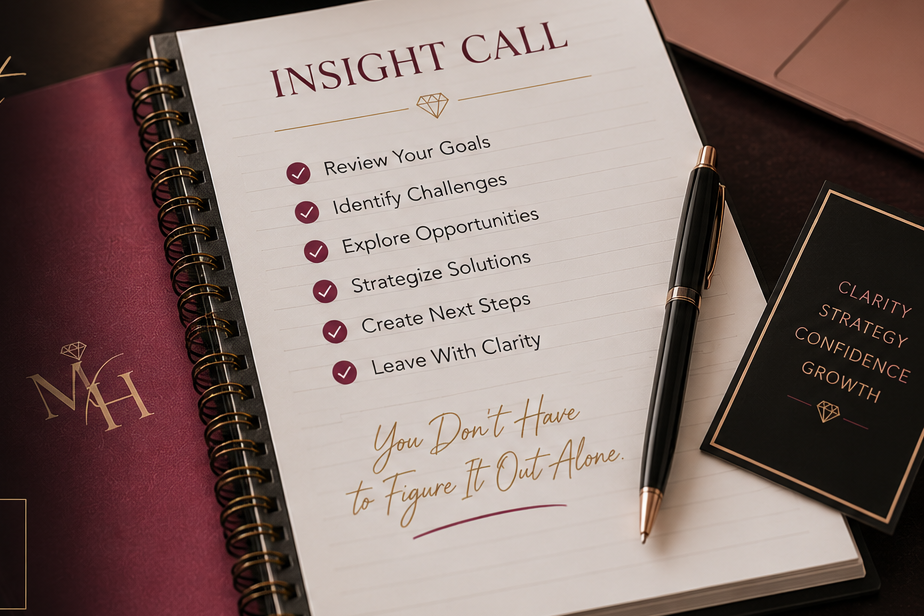 INSIGHT CALL
Review Your Goals
Identify Challenges
Explore Opportunities
Strategize Solutions
Create Next Steps
Leave With Clarity
You Don't Have
to Figure It Out Alone.
MH
CLARITY
STRATEGY
CONFIDENCE
GROWTH